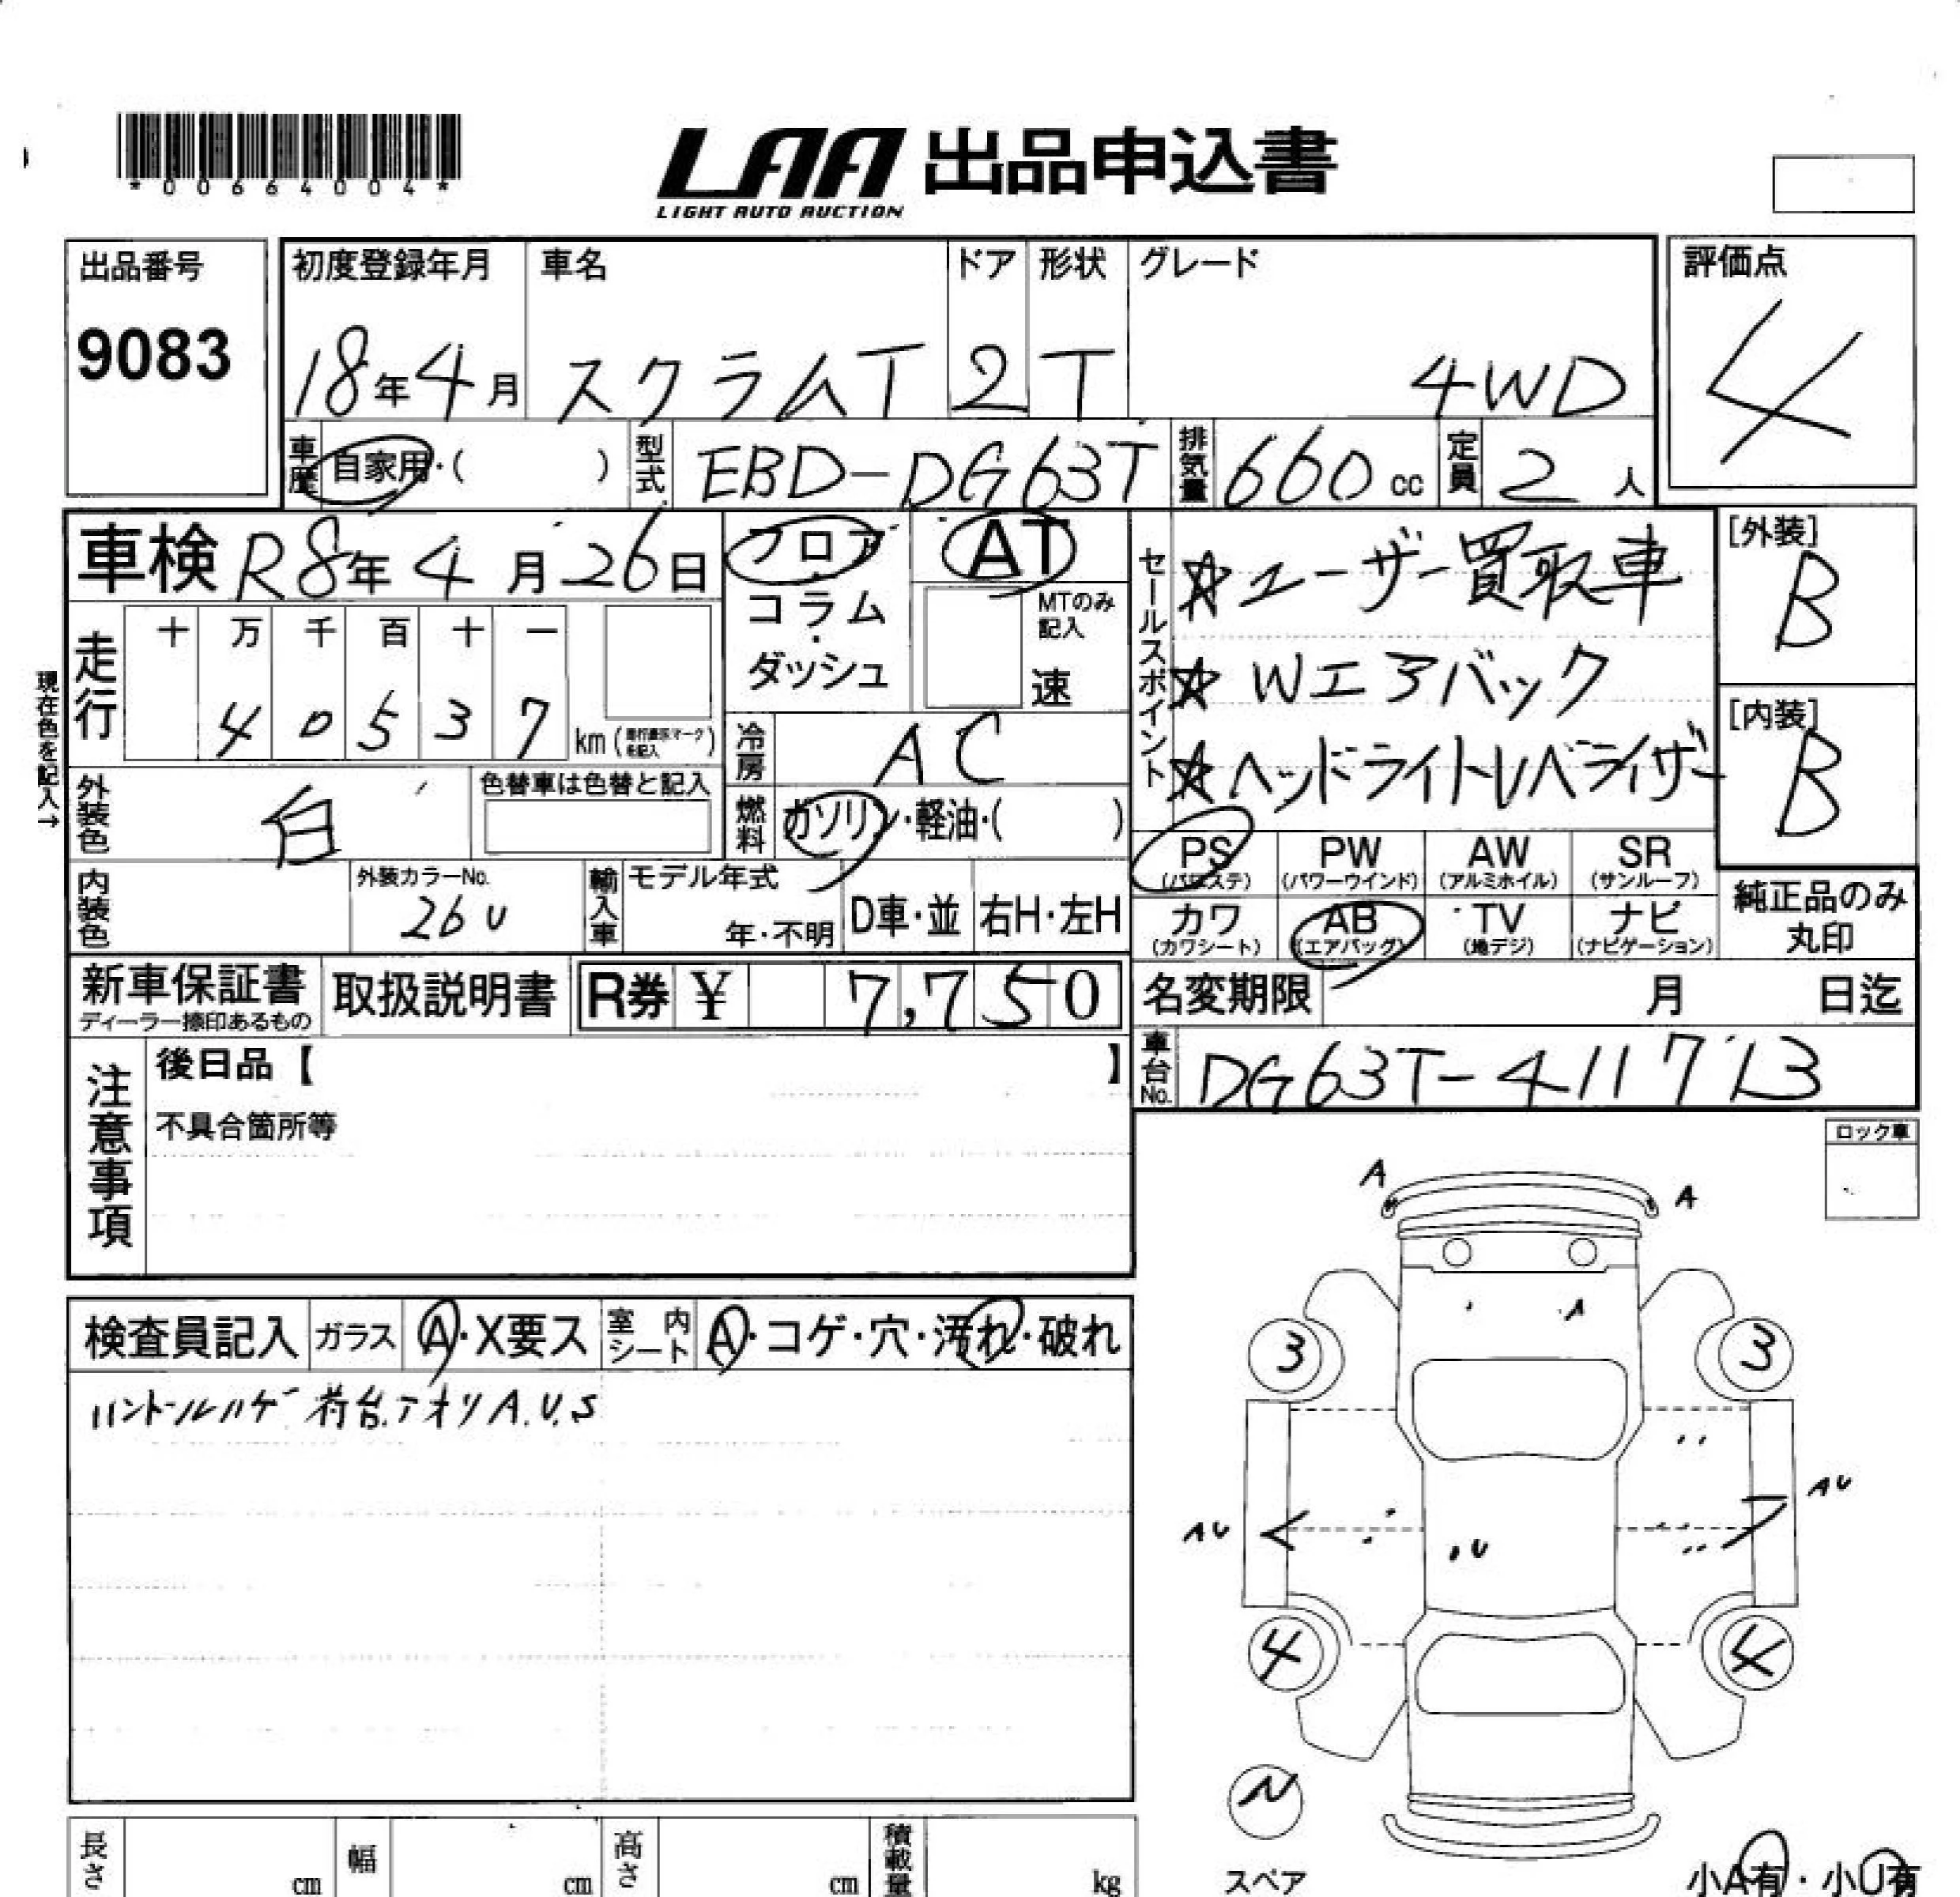 *00664004*
LAA 出品申込書
LIGHT AUTO AUCTION
出品番号 9083
初度登録年月 18年4月
車名 スクラムT
ドア 2
形状 T
グレード 4WD
評価点 4
車歴 自家用・( )
型式 EBD-DG63T
排気量 660 cc
定員 2 人
車検 R8年4月26日
フロア・コラム・ダッシュ
AT
MTのみ記入
速
セールスポイント
☆ユーザー買取車
☆Wエアバック
☆ヘッドライトレベライザー
[外装] B
[内装] B
現在色を記入→
走行 十 万 千 百 十 一
4 0 5 3 7 km (走行表示マークを記入)
冷房 AC
外装色 白
色替車は色替と記入
燃料 ガソリン・軽油・( )
内装色
外装カラーNo. 26U
輸入車 モデル年式 年・不明
D車・並
右H・左H
PS (パワステ)
PW (パワーウインド)
AW (アルミホイル)
SR (サンルーフ)
カワ (カワシート)
AB (エアバッグ)
TV (地デジ)
ナビ (ナビゲーション)
純正品のみ丸印
新車保証書
ディーラー捺印あるもの
取扱説明書
R券 ¥ 7,750
名変期限 月 日迄
車台No. DG63T-411713
注意事項
後日品【 】
不具合箇所等
ロック車
検査員記入
ガラス A・X要ス
室内シート A・コゲ・穴・汚れ・破れ
ハンドルハゲ 荷台.アオリA.U.S
A
A
A
3
3
AU
AU
U
4
4
N
スペア
小A有・小U有
長さ cm
幅 cm
高さ cm
積載量 kg